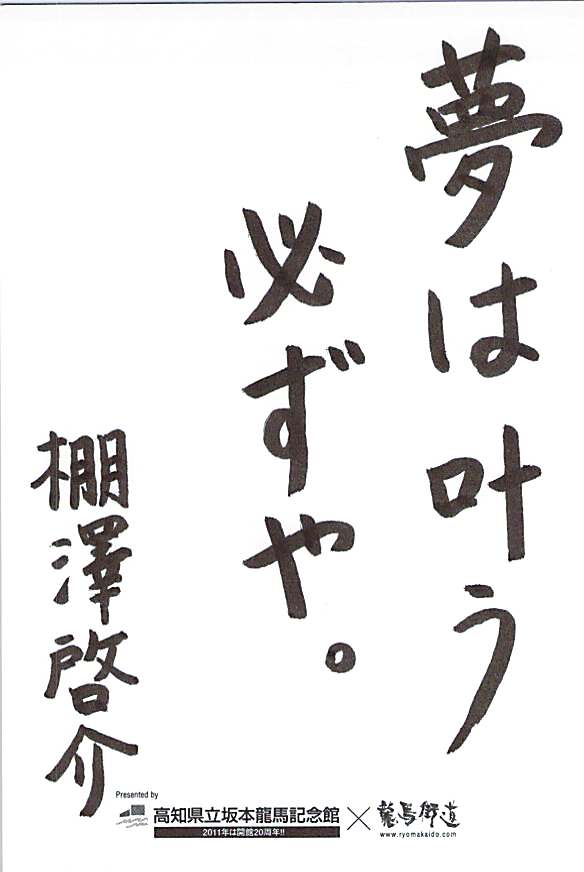 夢は叶う
必ずや。
棚澤啓介
Presented by
高知県立坂本龍馬記念館 × 龍馬街道
2011年は開館20周年!!
www.ryomakaido.com